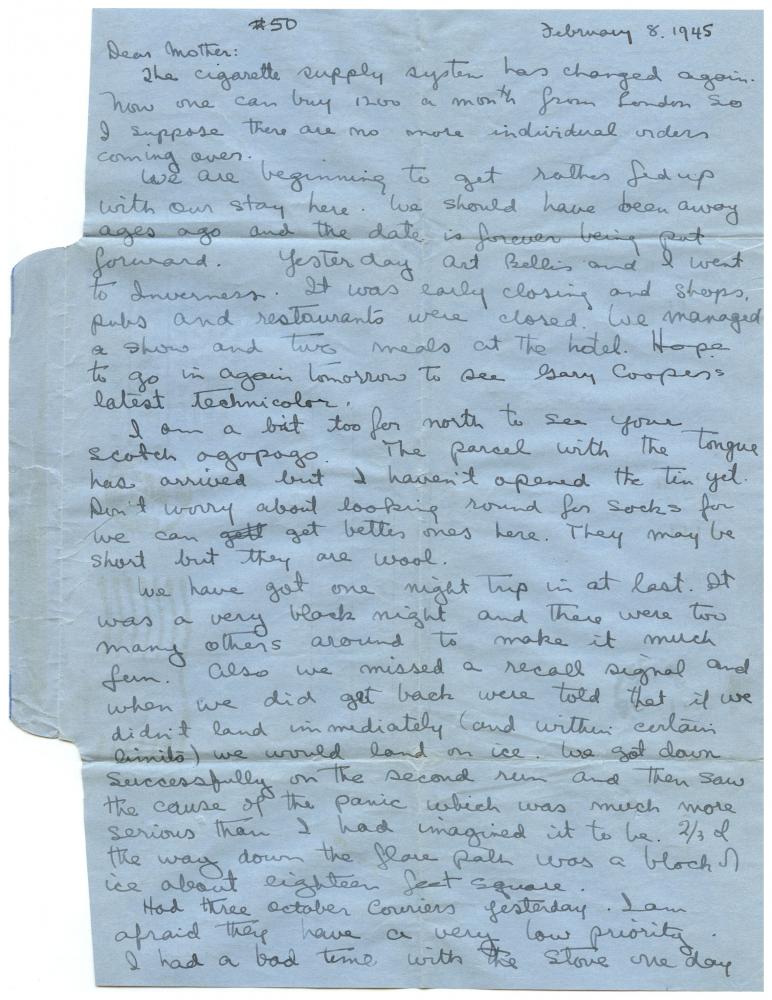 #50 February 8. 1945
Dear Mother:
The cigarette supply system has changed again.
Now one can buy 1200 a month from London so
I suppose there are no more individual orders
coming over.
We are beginning to get rather fed up
with our stay here. We should have been away
ages ago and the date is forever being put
forward. Yesterday Art Bellis and I went
to Inverness. It was early closing and shops,
pubs and restaurants were closed. We managed
a show and two meals at the hotel. Hope
to go in again tomorrow to see Gary Coopers
latest technicolor.
I am a bit too far north to see your
Scotch ogopogo. The parcel with the tongue
has arrived but I haven't opened the tin yet.
Don't worry about looking round for socks for
we can get better ones here. They may be
short but they are wool.
We have got one night trip in at last. It
was a very black night and there were too
many others around to make it much
fun. Also we missed a recall signal and
when we did get back were told that if we
didn't land immediately (and within certain
limits) we would land on ice. We got down
successfully on the second run and then saw
the cause of the panic which was much more
serious than I had imagined it to be. 2/3 of
the way down the flare path was a block of
ice about eighteen feet square.
Had three october Couriers yesterday. I am
afraid they have a very low priority.
I had a bad time with the stove one day